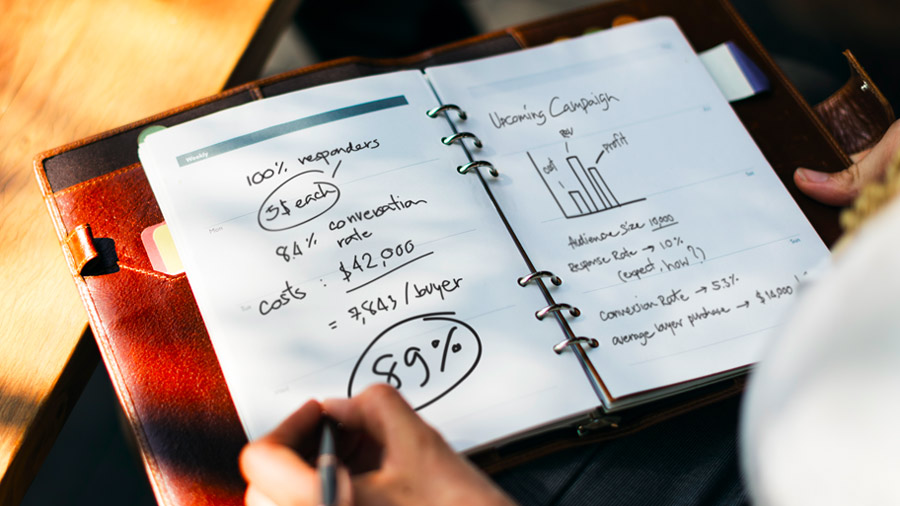 Weekly
100% responders
5$ each
Mon
84% conversation
rate
costs : $42,000
= 7,843 / buyer
89%
Upcoming Campaign
Rev
cost
Profit
Audience size 10,000
Response Rate → 10%
(expect, how?)
Conversion Rate → 5.3%
average buyer purchase →